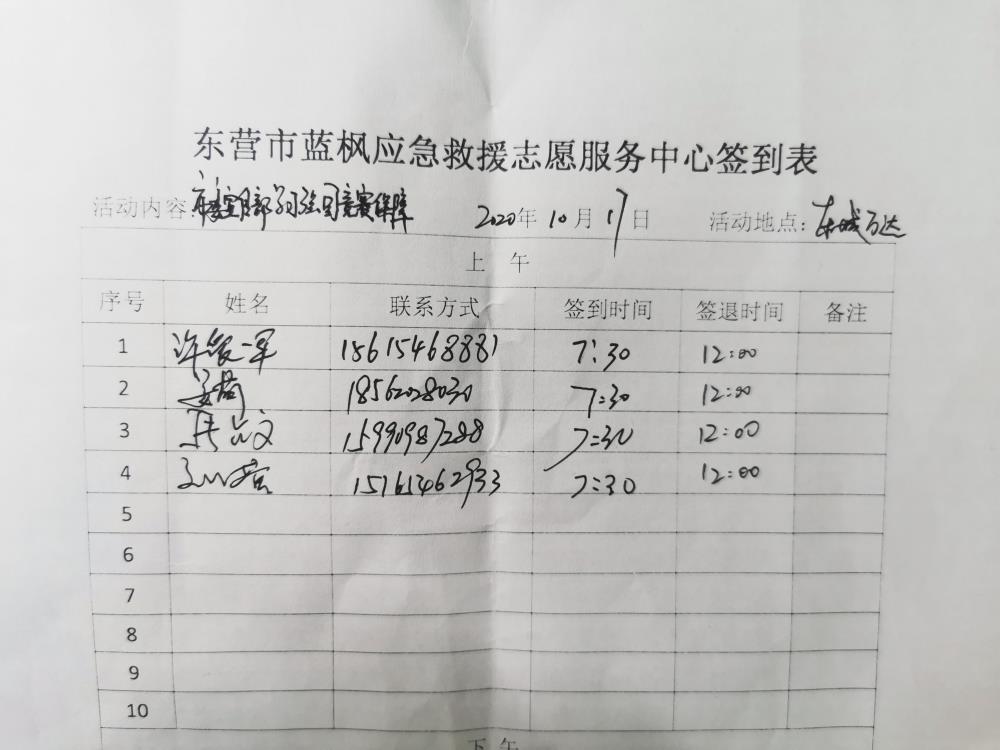 东营市蓝枫应急救援志愿服务中心签到表
活动内容 竞赛保障 2020年 10月 17日 活动地点: 东城万达
上 午
序号 姓名 联系方式 签到时间 签退时间 备注
1 18615468881 7:30 12:00
2 18562028030 7:30 12:00
3 15990987288 7:30 12:00
4 15163462933 7:30 12:00
5
6
7
8
9
10
下 午